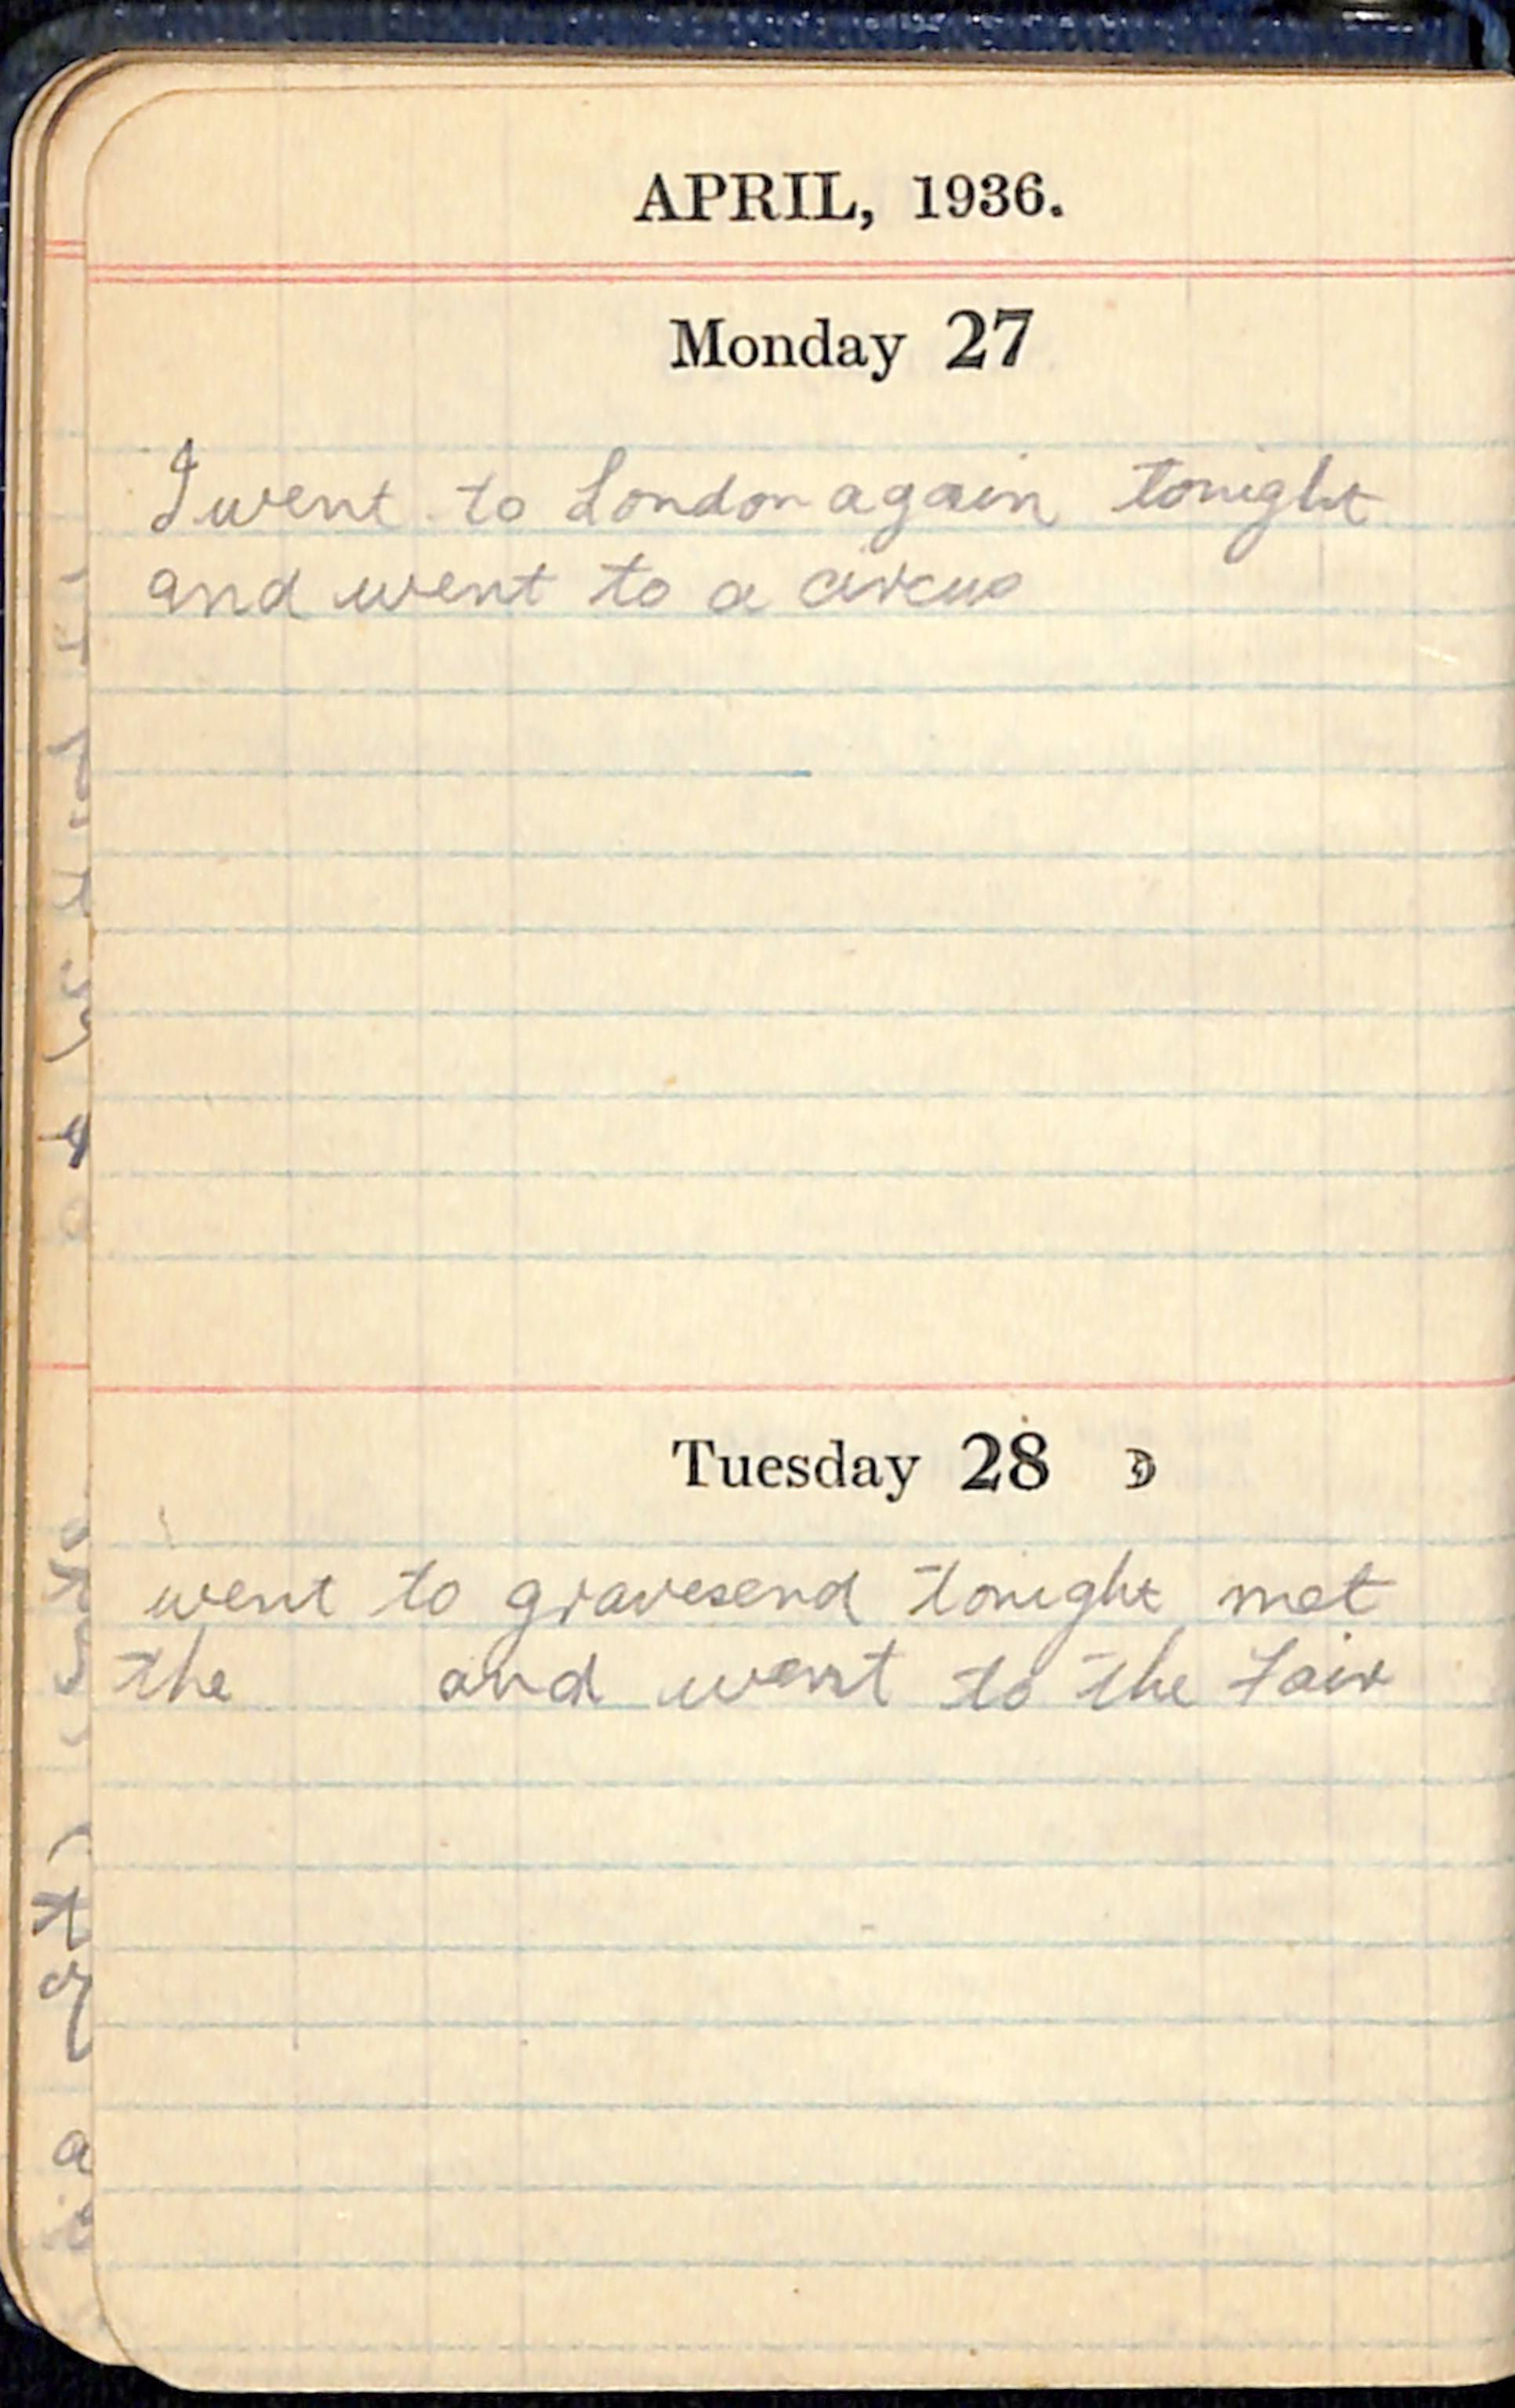 APRIL, 1936.
Monday 27
I went to London again tonight
and went to a circus
Tuesday 28
went to gravesend tonight met
the and went to the Fair